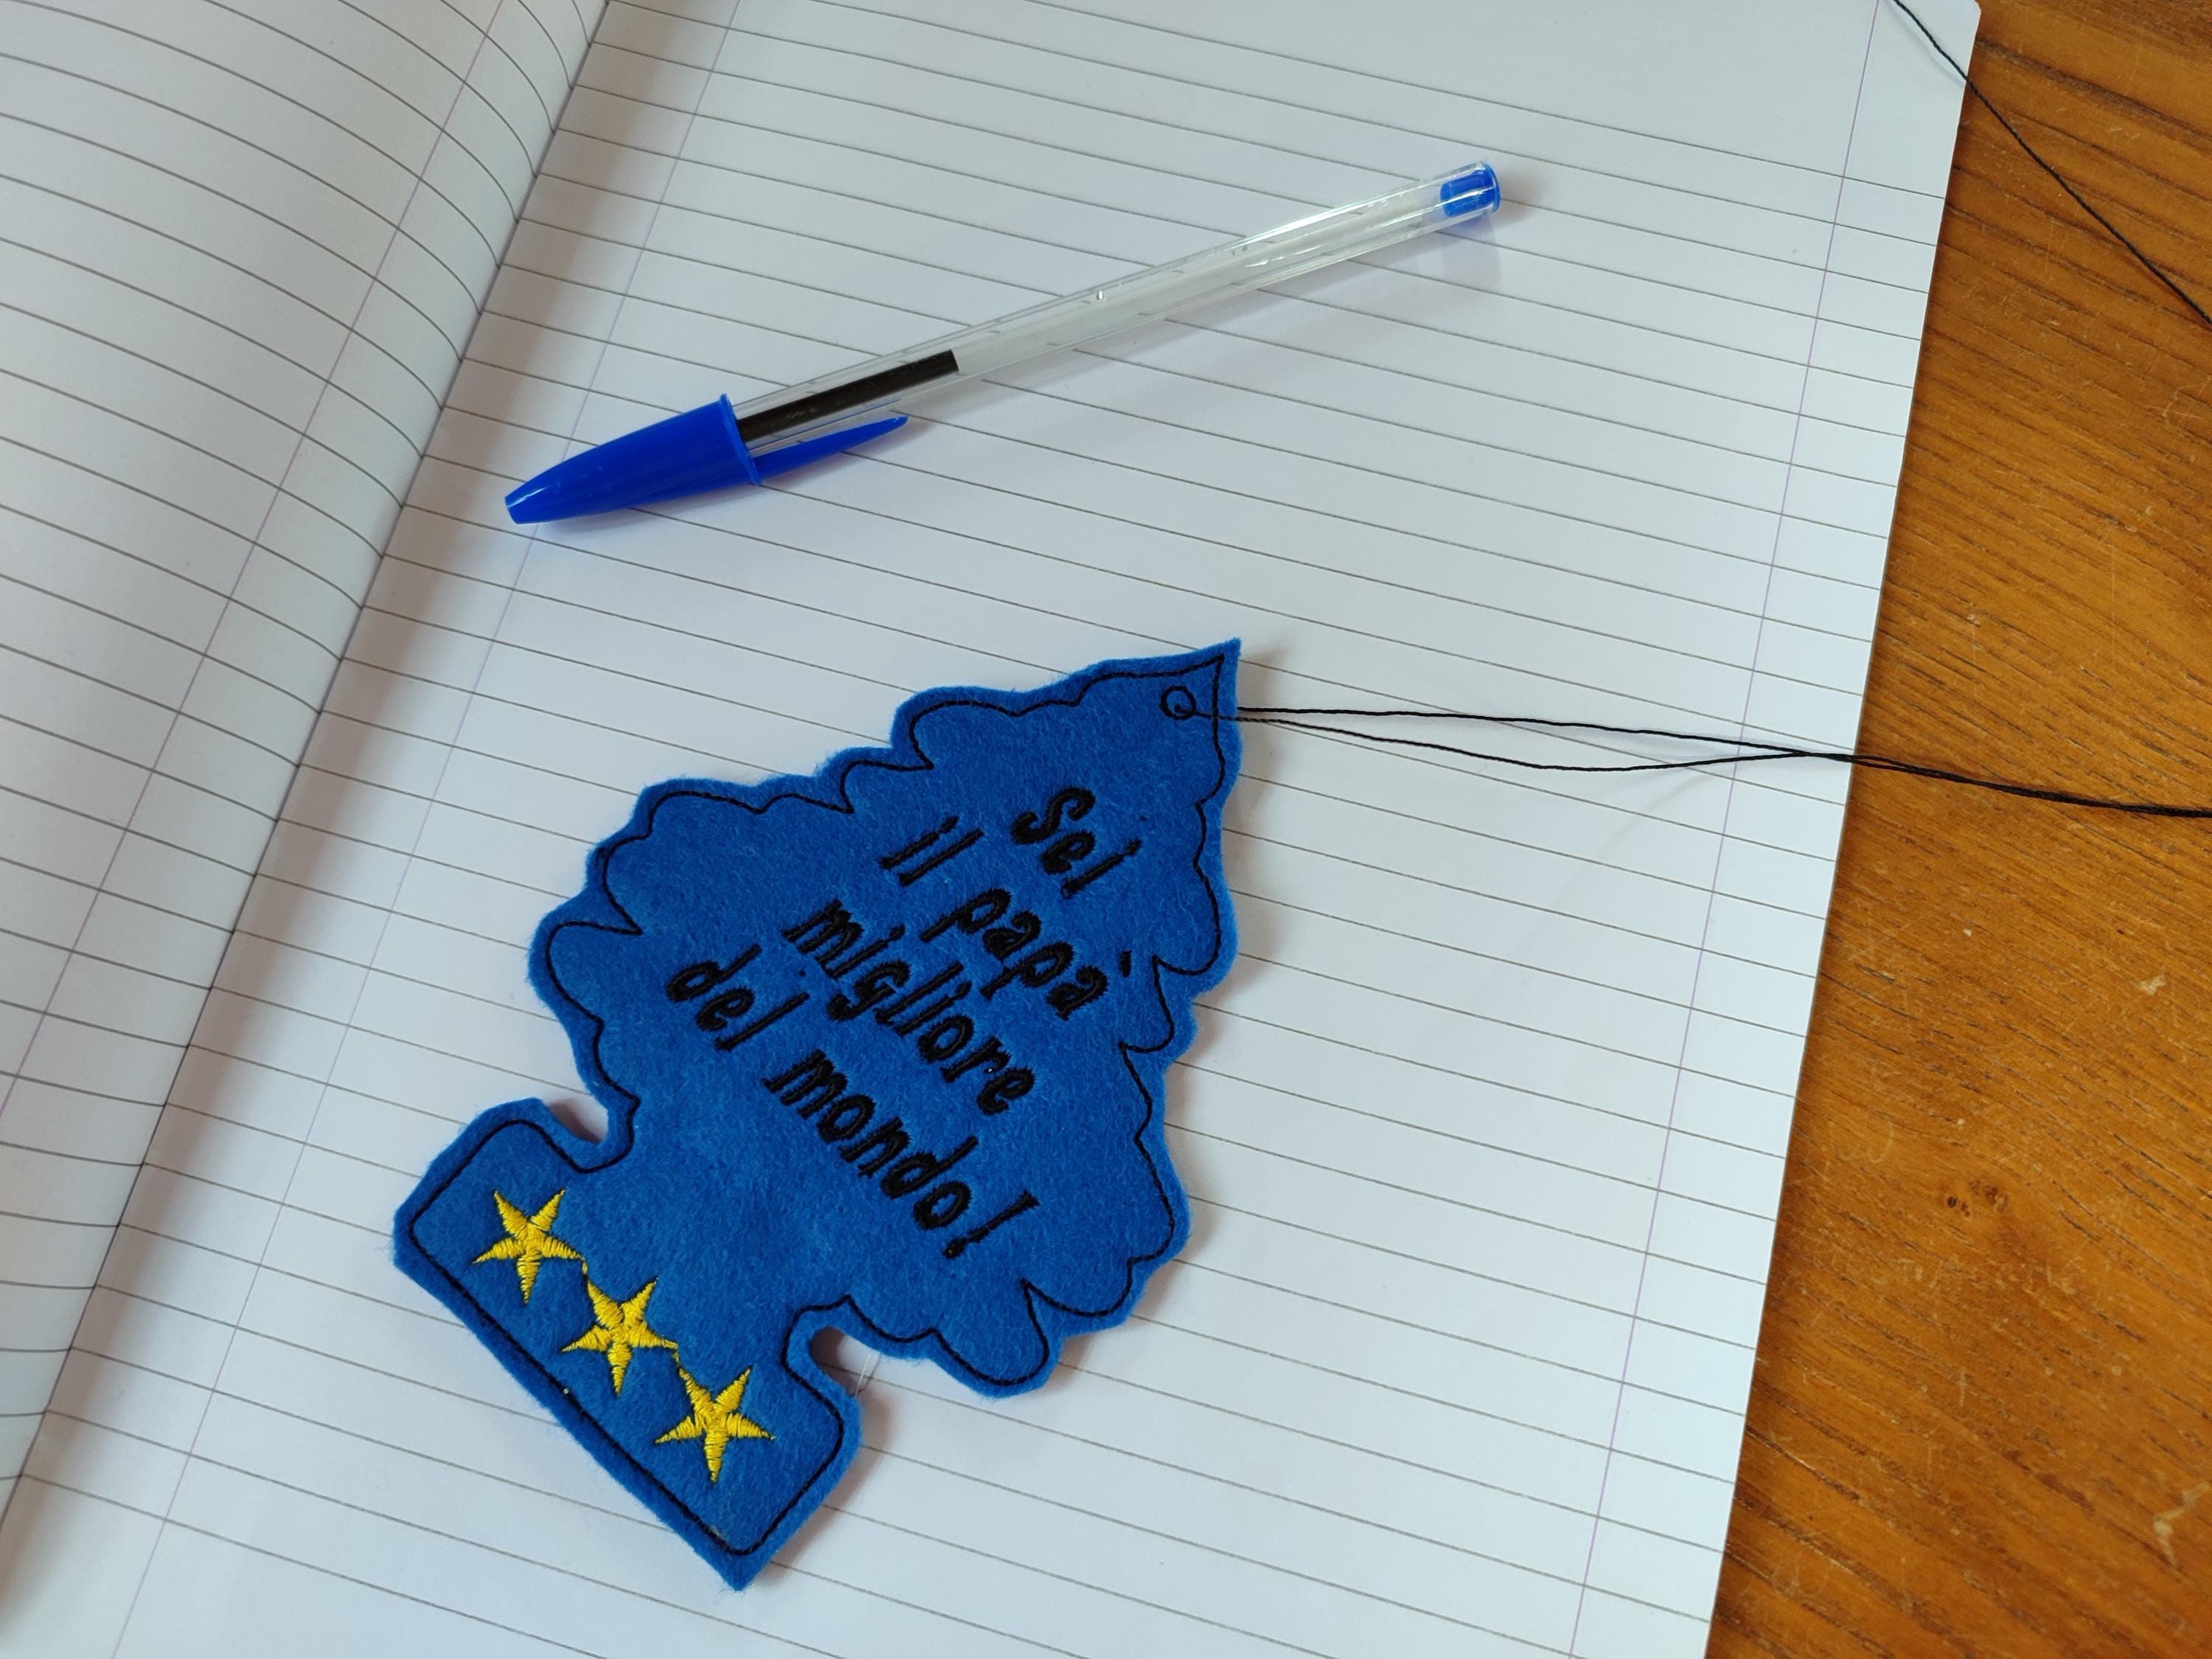 Sei
il papa'
migliore
del mondo!